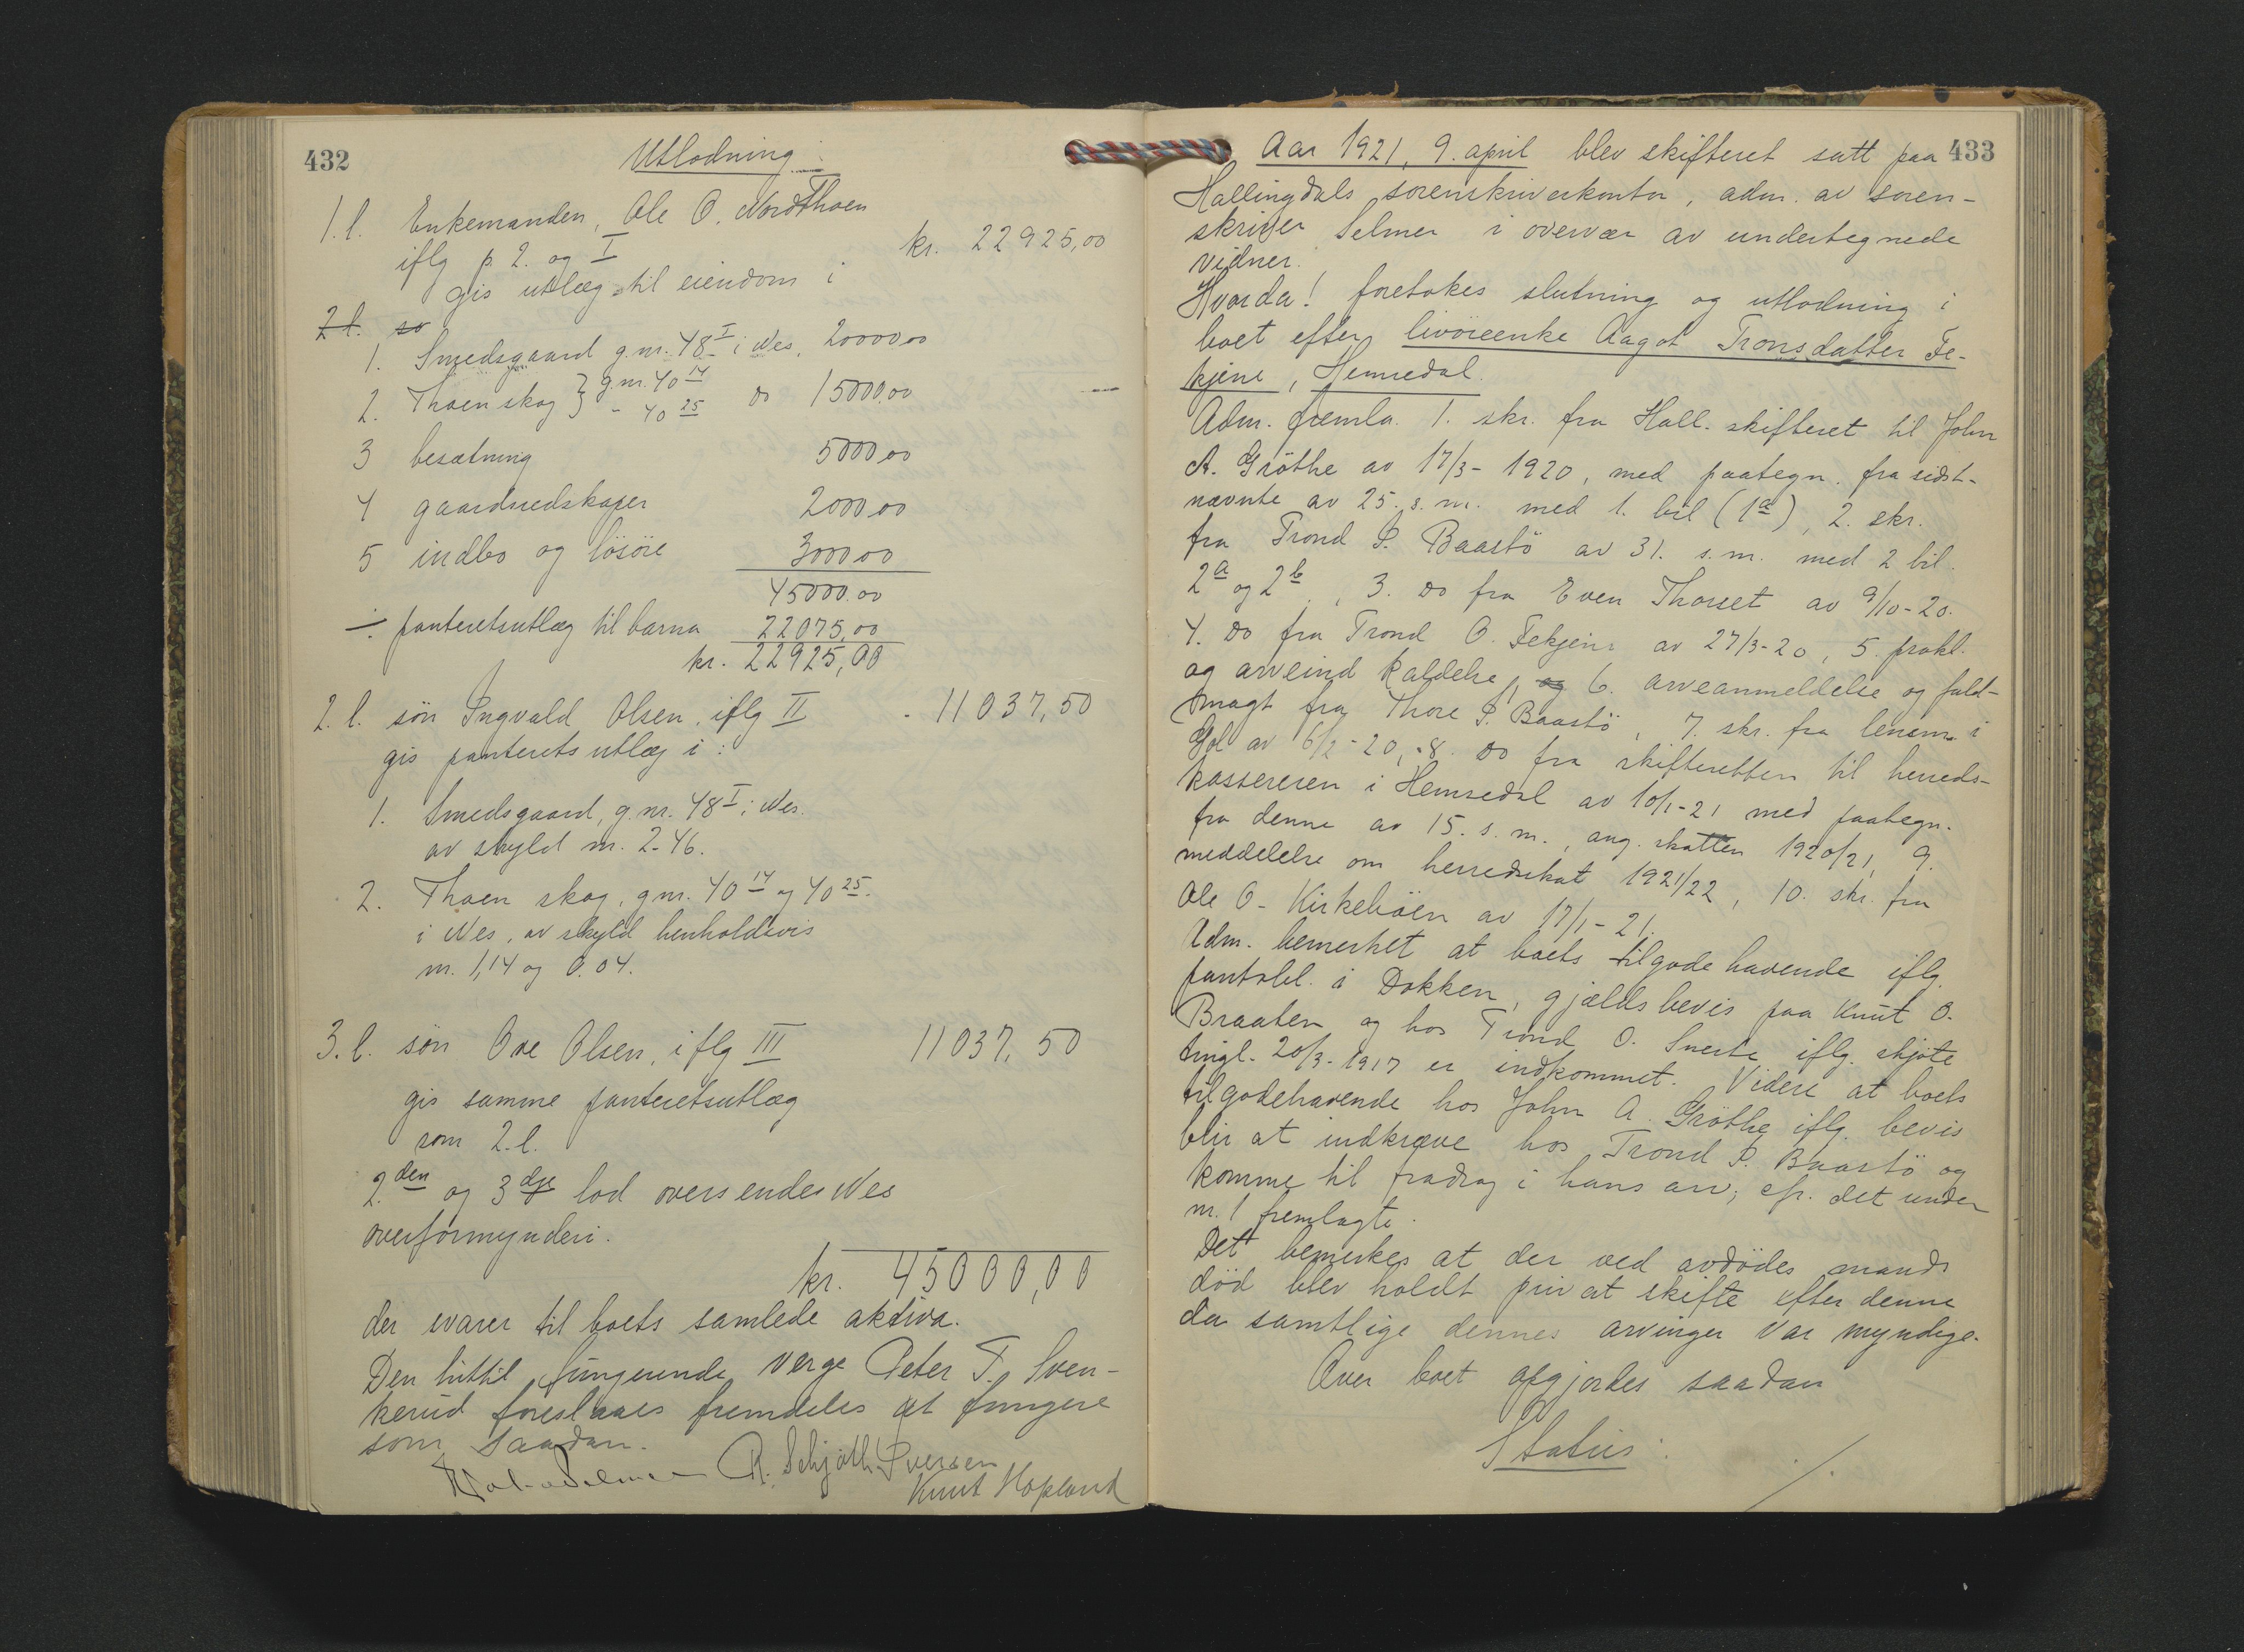 432
Utlodning
1.l. Enkemanden, Ole O. Nordthoen
iflg p. 2. og I kr. 22925,00
gis utlæg til eiendom i
2.l. sø
1. Smedsgaard g.nr. 48 I i Nes, 20000.00
2. Thoen skog } g.nr. 40 14 do 15000.00
- 40 25
3 besætning 5000.00
4 gaardsredskaper 2000.00
5 indbo og løsøre 3000.00
45000.00
÷ panteretsutlæg til barna 22075,00
kr. 22925,00
2.l. søn Ingvald Olsen, iflg II - 11037,50
gis panterets utlæg i:
1. Smedsgaard, g.nr. 48 I i Nes.
av skyld m. 2-46.
2. Thoen skog, gnr. 40 14 og 40 25.
i Nes, av skyld henholdsvis
m. 1,14 og 0.04.
3.l. søn Ove Olsen, iflg III 11037,50
gis samme panteretsutlæg
som 2.l.
2.den og 3dje lod oversendes Nes
overformynderi.
kr. 45000,00
der svarer til boets samlede aktiva.
Den hittil fungerende verge Peter T. Sven-
kerud foreslaaes fremdeles at fungere
som saadan.
Selmer R. Schjøth Iversen
Knut Hopland
433
Aar 1921, 9. april blev skifteret satt paa
Hallingdals sorenskriverkontor, adm. av soren-
skriver Selmer i overvær av undertegnede
vidner.
Hvorda! foretokes slutning og utlodning i
boet efter livøreenke Aagot Tronsdatter Fe-
kjene, Hemsedal.
Adm. fremla 1. skr. fra Hall. skifteret til John
A. Grøthe av 17/3-1920, med paategn. fra sidst-
nævnte av 25. s.m. med 1. bil (1a), 2. skr.
fra Trond P. Baastø av 31. s.m. med 2 bil.
2a og 2b, 3. do fra Even Thorset av 9/10-20.
4. do fra Trond O. Fekjene av 27/3-20, 5. prokl.
og arveind kaldelse, og 6. arveanmeldelse og fuld-
magt fra Thore P. Baastø, 7. skr. fra lensm. i
Gol av 6/2-20, -8. do fra skifteretten til herreds-
kassereren i Hemsedal av 10/1-21 med paategn.
fra denne av 15. s.m., ang. skatten 1920/21, 9.
meddelelse om herredsskat 1921/22, 10. skr. fra
Ole O. Kirkebøen av 17/1-21.
Adm. bemerket at boets tilgode havende iflg.
pantobl. i Dokken, gjældsbevis paa Knut O.
Braaten og hos Trond O. Snerte iflg. skjøte
tingl. 20/3-1917 er indkommet. Videre at boets
tilgodehavende hos John A. Grøthe iflg. bevis
blir at indkræve hos Trond P. Baastø og
komme til fradrag i hans arv; cfr. det under
nr. 1 fremlagte.
Det bemerkes at der ved avdødes mands
død blev holdt privat skifte efter denne
da samtlige dennes arvinger var myndige.
Over boet opgjordes saadan
Status:
./.